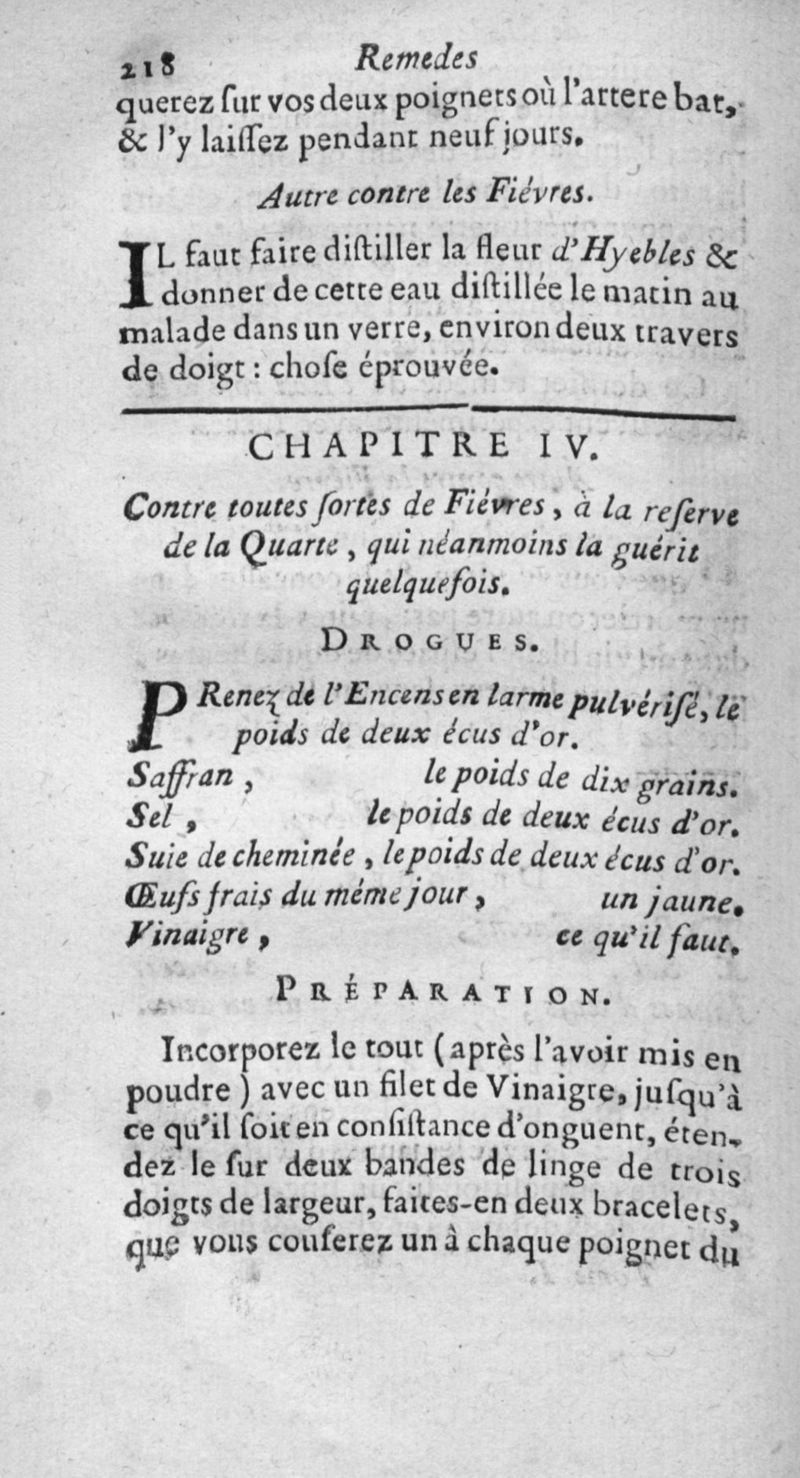 218 Remedes
querez ſur vos deux poignets où l'artere bat,
& l'y laiſſez pendant neuf jours.
Autre contre les Fiévres.
IL faut faire diſtiller la fleur d'Hyebles &
donner de cette eau diſtillée le matin au
malade dans un verre, environ deux travers
de doigt : choſe éprouvée.
CHAPITRE IV.
Contre toutes ſortes de Fiévres, à la reſerve
de la Quarte, qui néanmoins la guérit
quelquefois.
DROGUES.
PRenez de l'Encens en larme pulvériſé, le
poids de deux écus d'or.
Saffran, le poids de dix grains.
Sel, le poids de deux écus d'or.
Suie de cheminée, le poids de deux écus d'or.
Œufs frais du même jour, un jaune.
Vinaigre, ce qu'il faut.
PRÉPARATION.
Incorporez le tout (après l'avoir mis en
poudre) avec un filet de Vinaigre, juſqu'à
ce qu'il ſoit en conſiſtance d'onguent, éten-
dez le ſur deux bandes de linge de trois
doigts de largeur, faites-en deux bracelets,
que vous couſerez un à chaque poignet du